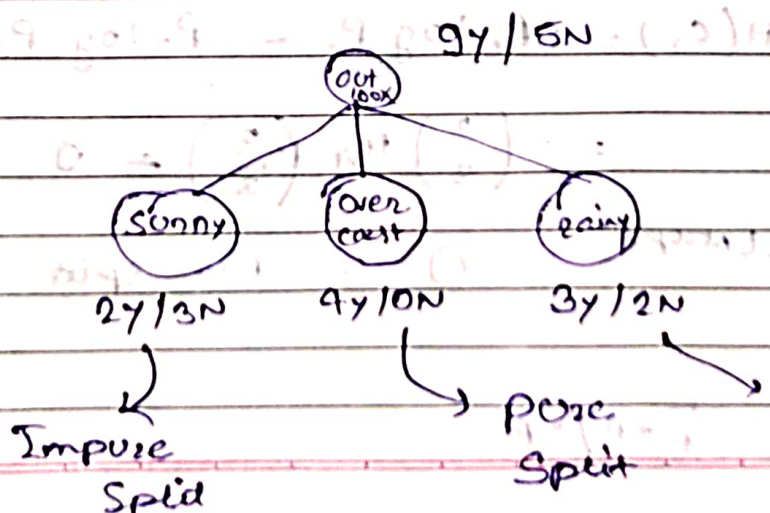 9Y/5N
out
look
Sunny
Over
cast
Rainy
2Y/3N
4Y/0N
3Y/2N
Impure
Split
pure
Split